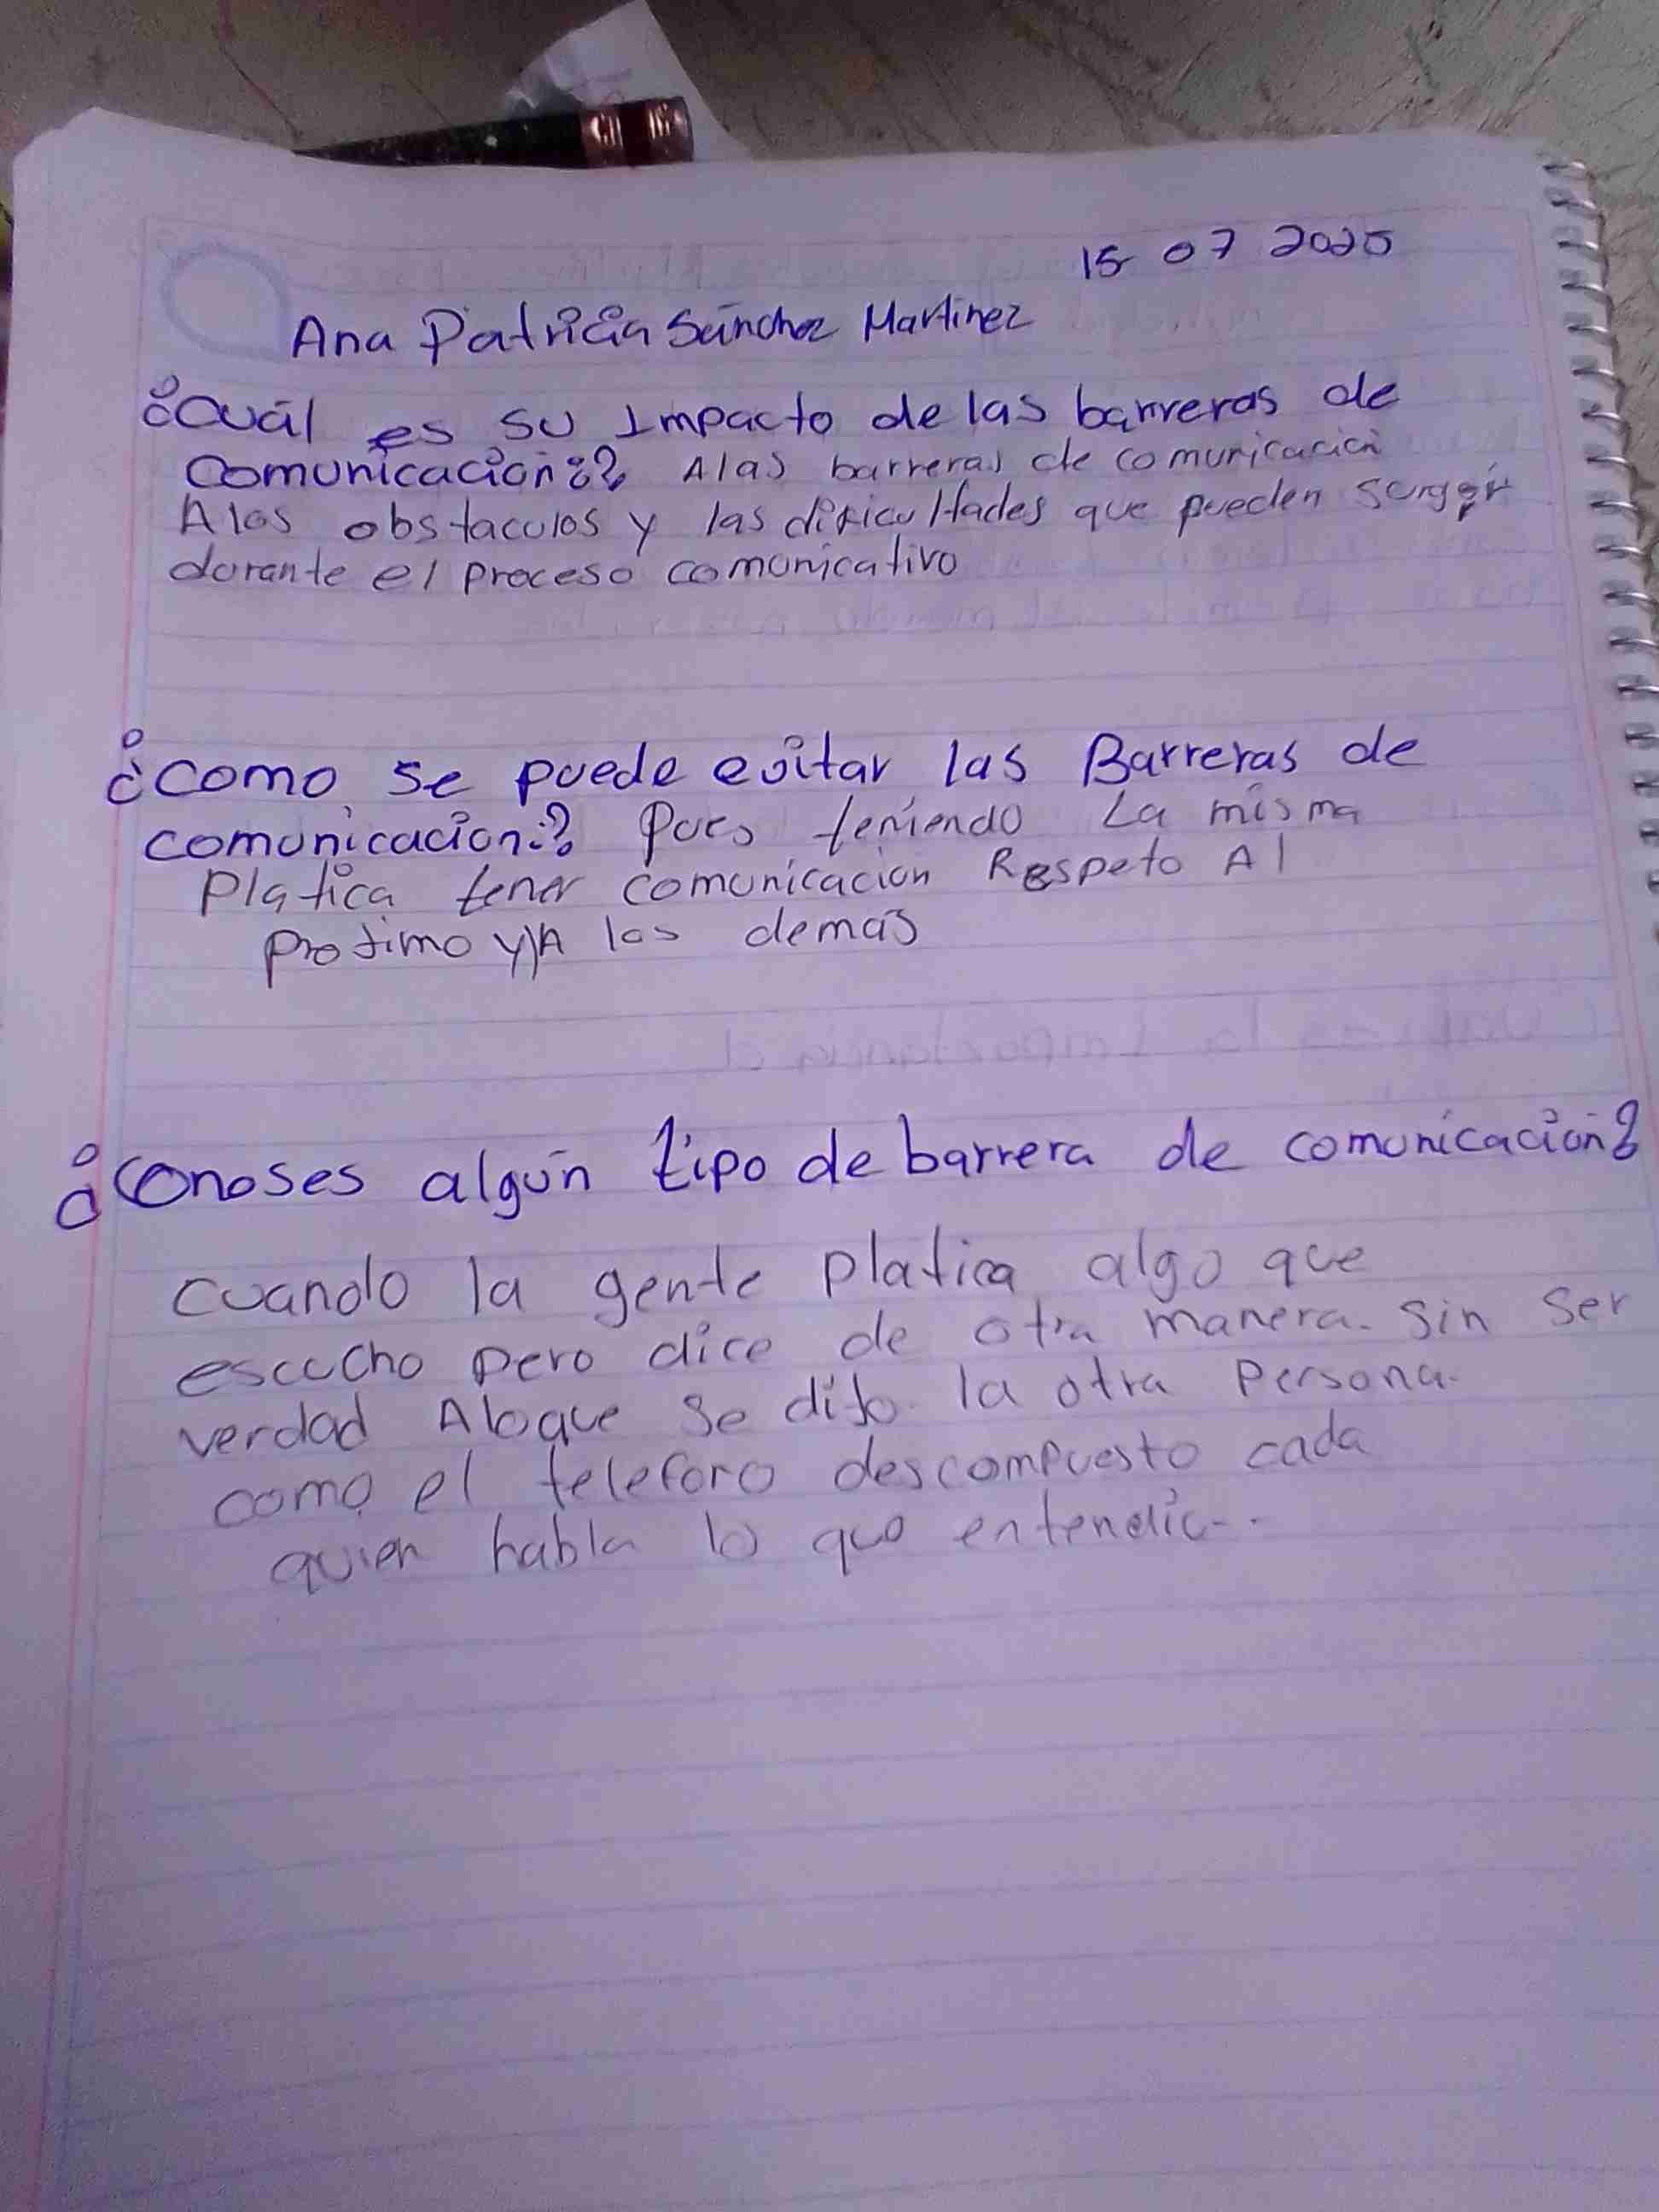 15 07 2025
Ana Patricia Sánchez Martinez
¿Cuál es su Impacto de las barreras de
comunicación¿? Alas barreras de comunicación
Alos obstaculos y las dificultades que pueden surgir
durante el proceso comunicativo
¿como se puede evitar las Barreras de
comunicacion? Pues teniendo La misma
Platica tener comunicacion Respeto Al
protimo y A los demas
¿Conoses algún tipo de barrera de comunicación?
Cuando la gente platica algo que
escucho pero dice de otra manera. sin ser
verdad Aloque se dijo la otra persona.
como el telefono descompuesto cada
quien habla lo que entendio..